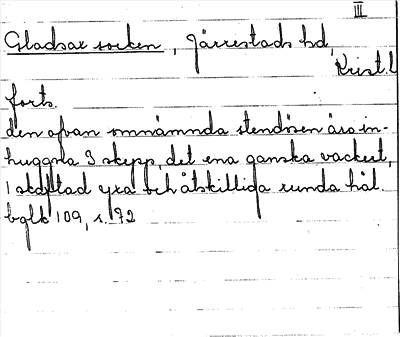 III
Gladsax socken, Järrestads hd,
Krist. l
forts.
den ofvan omnämnda stendösen äro in-
huggna 3 skepp, det ena ganska vackert,
1 skaftad yxa och åtskilliga runda hål.
bglk 109, s. 72